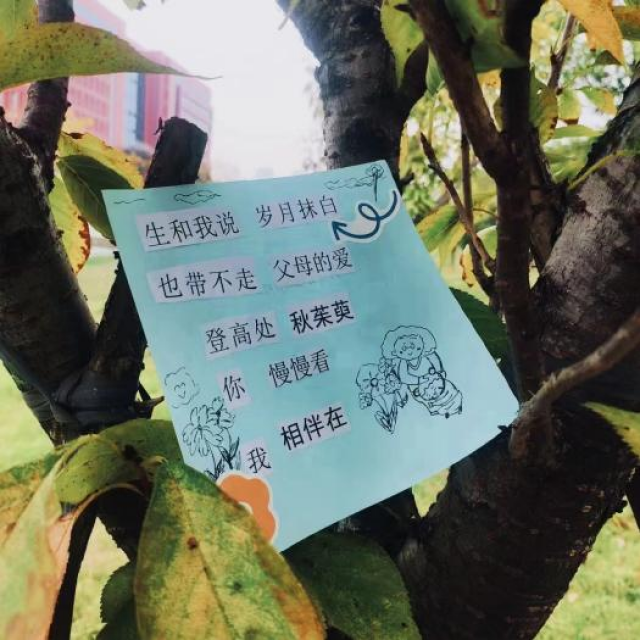 生和我说 岁月抹白
也带不走 父母的爱
登高处 秋茱萸
你 慢慢看
我 相伴在